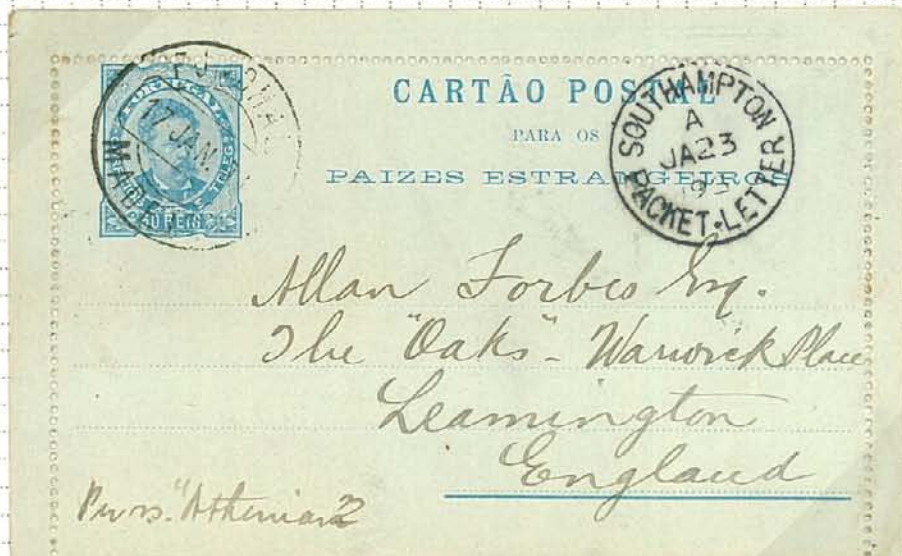 CARTÃO POSTAL
PARA OS
PAIZES ESTRANGEIROS
FUNCHAL
17 JAN.
MADEIRA
PORTUGAL
40 REIS
SOUTHAMPTON
A
JA23
PACKET-LETTER
Allan Forbes Esq.
The "Oaks" - Warwick Place
Leamington
England
"Athenian"